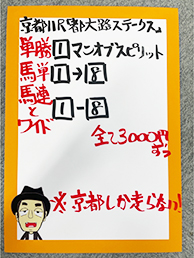 京都11R『都大路ステークス』
単勝 1 マンオブスピリット
馬単 1→8
馬連と
ワイド 1-8
全て3000円
ずつ
※京都しか走らない!